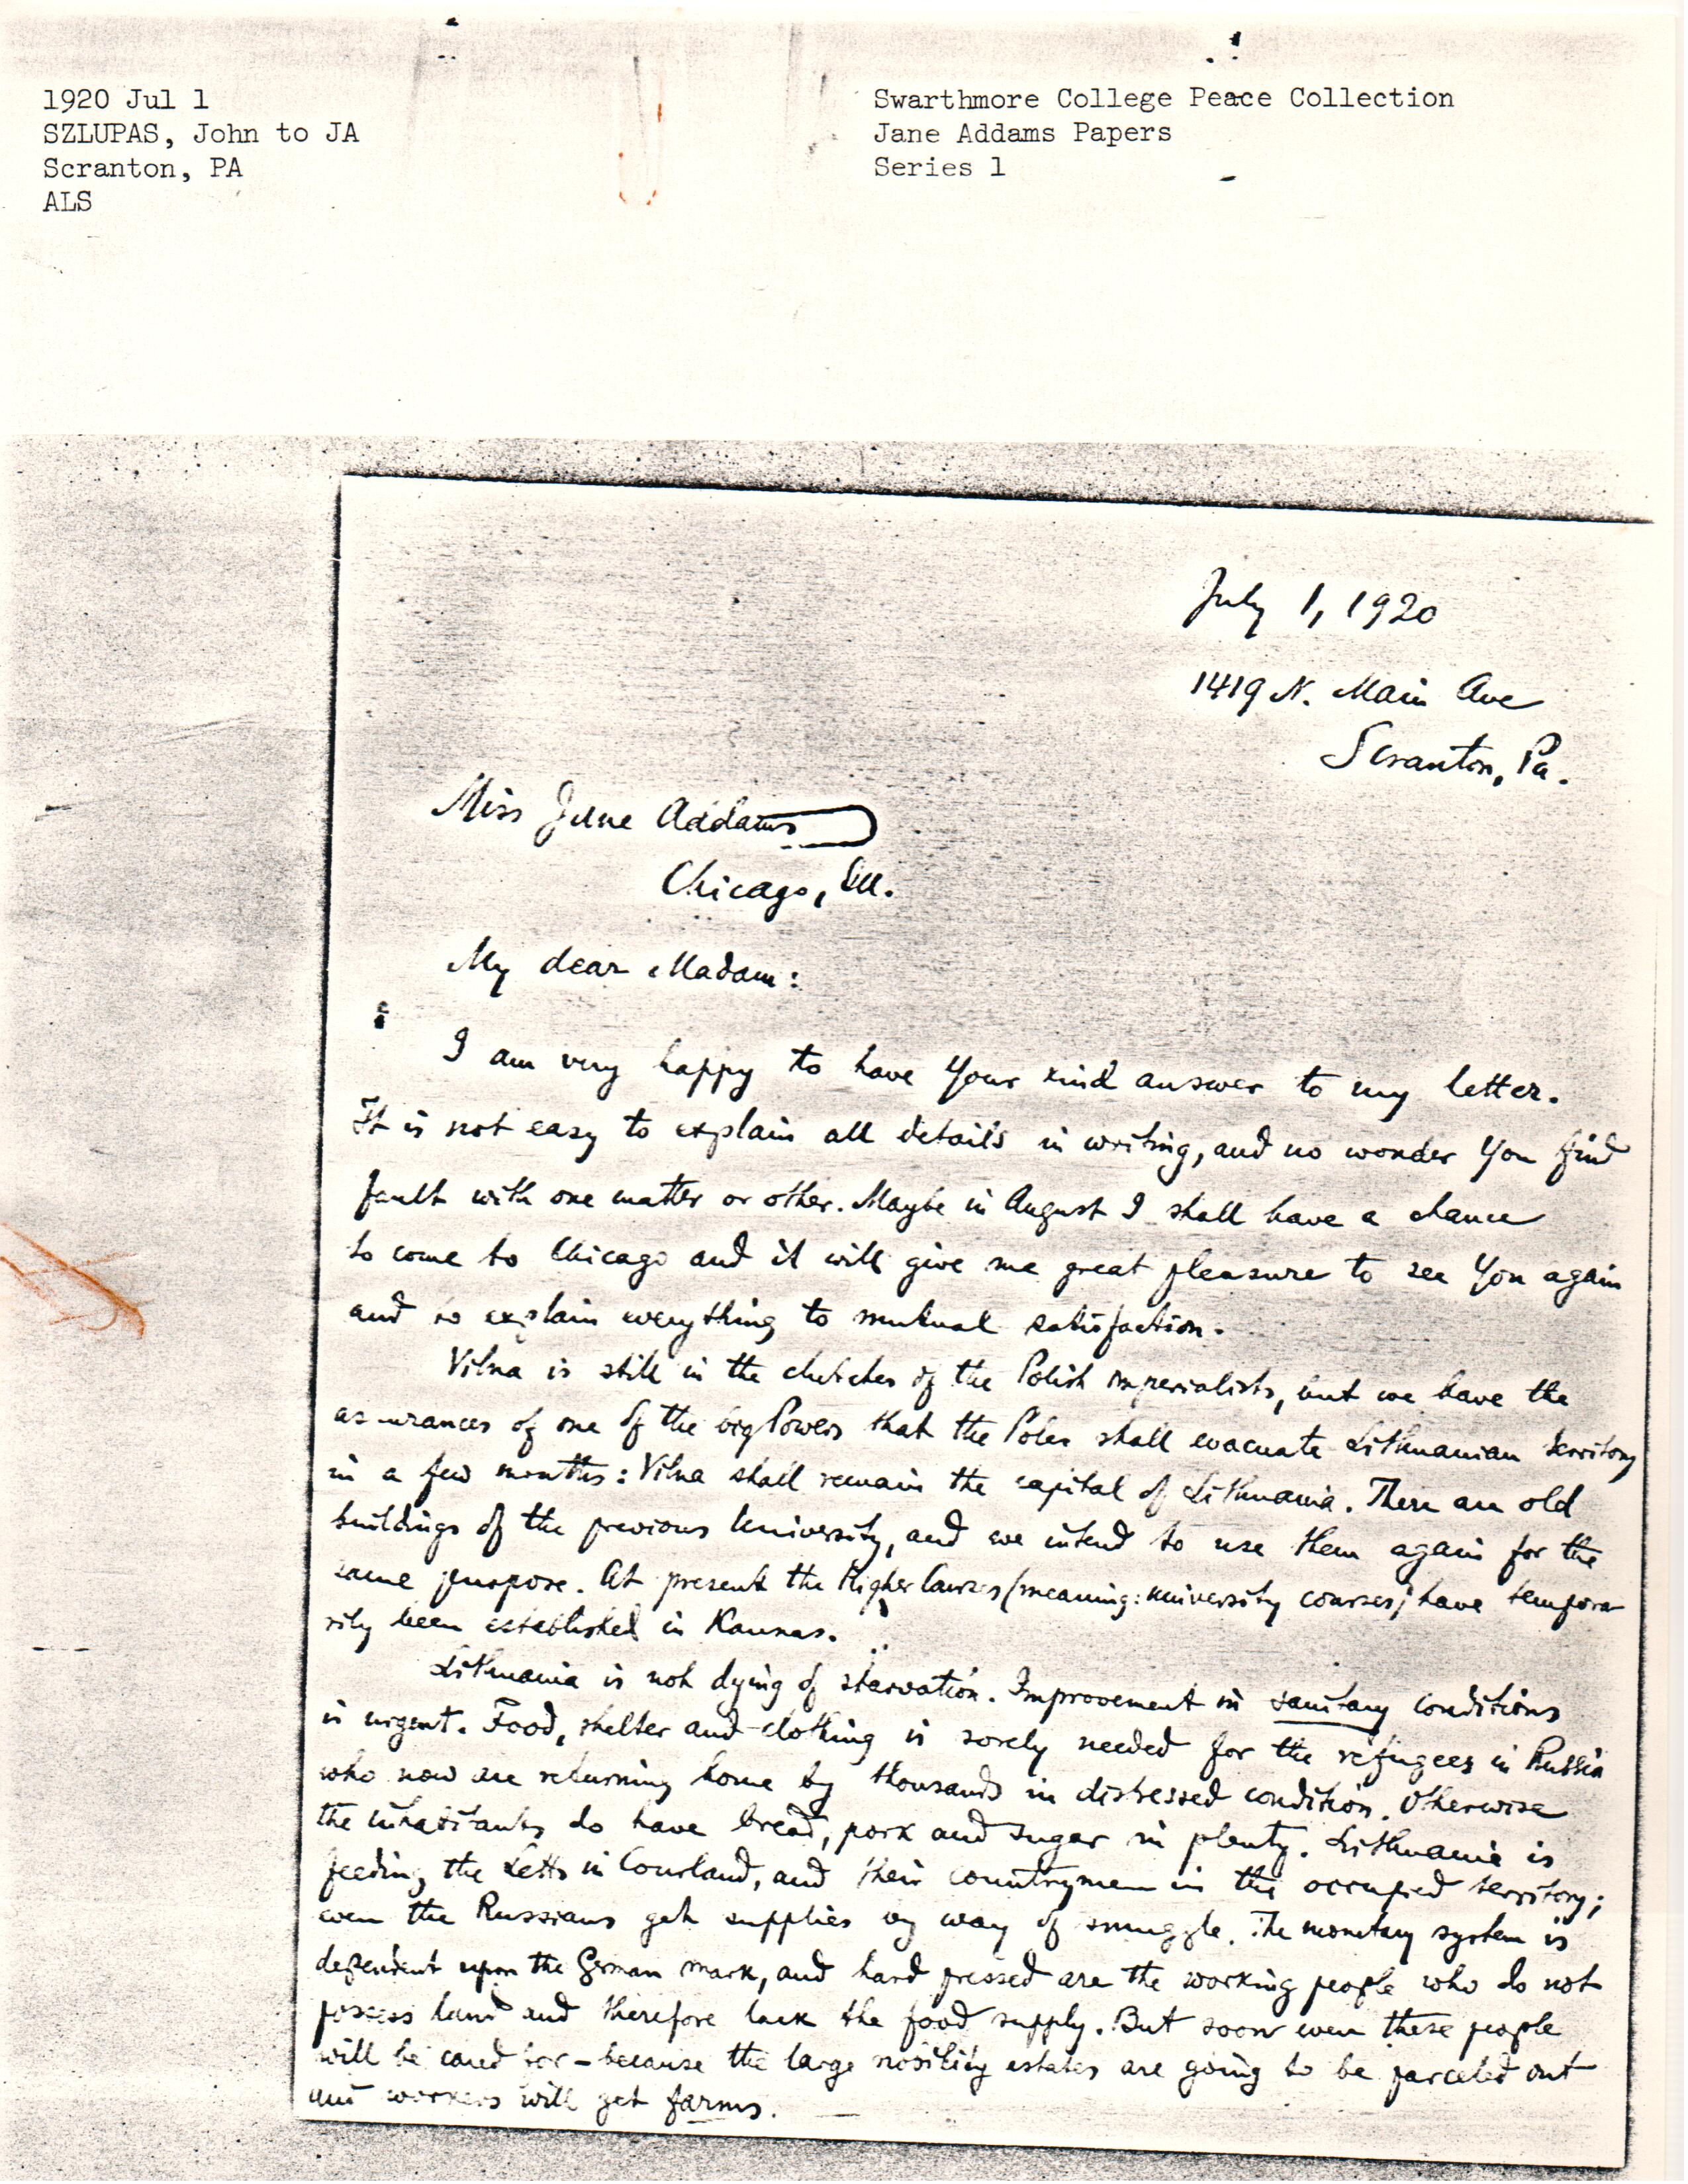 1920 Jul 1
SZLUPAS, John to JA
Scranton, PA
ALS
Swarthmore College Peace Collection
Jane Addams Papers
Series 1
July 1, 1920
1419 N. Main Ave
Scranton, Pa.
Miss Jane Addams
Chicago, Ill.
My dear Madam:
I am very happy to have Your kind answer to my letter.
It is not easy to explain all details in writing, and no wonder You find
fault with one matter or other. Maybe in August I shall have a chance
to come to Chicago and it will give me great pleasure to see You again
and to explain everything to mutual satisfaction.
Vilna is still in the clutches of the Polish imperialists, but we have the
assurances of one of the big Powers that the Poles shall evacuate Lithuanian territory
in a few months: Vilna shall remain the capital of Lithuania. There are old
buildings of the previous University, and we intend to use them again for the
same purpose. At present the Higher Courses (meaning: university courses) have tempora
rily been established in Kaunas.
Lithuania is not dying of starvation. Improvement in sanitary conditions
is urgent. Food, shelter and clothing is sorely needed for the refugees in Russia
who now are returning home by thousands in distressed condition. Otherwise
the inhabitants do have bread, pork and sugar in plenty. Lithuania is
feeding the Letts in Courland, and their countrymen in the occupied territory;
even the Russians get supplies by way of smuggle. The monetary system is
dependent upon the German mark, and hard pressed are the working people who do not
possess land and therefore lack the food supply. But soon even these people
will be cared for – because the large nobility estates are going to be parceled out
and workers will get farms.